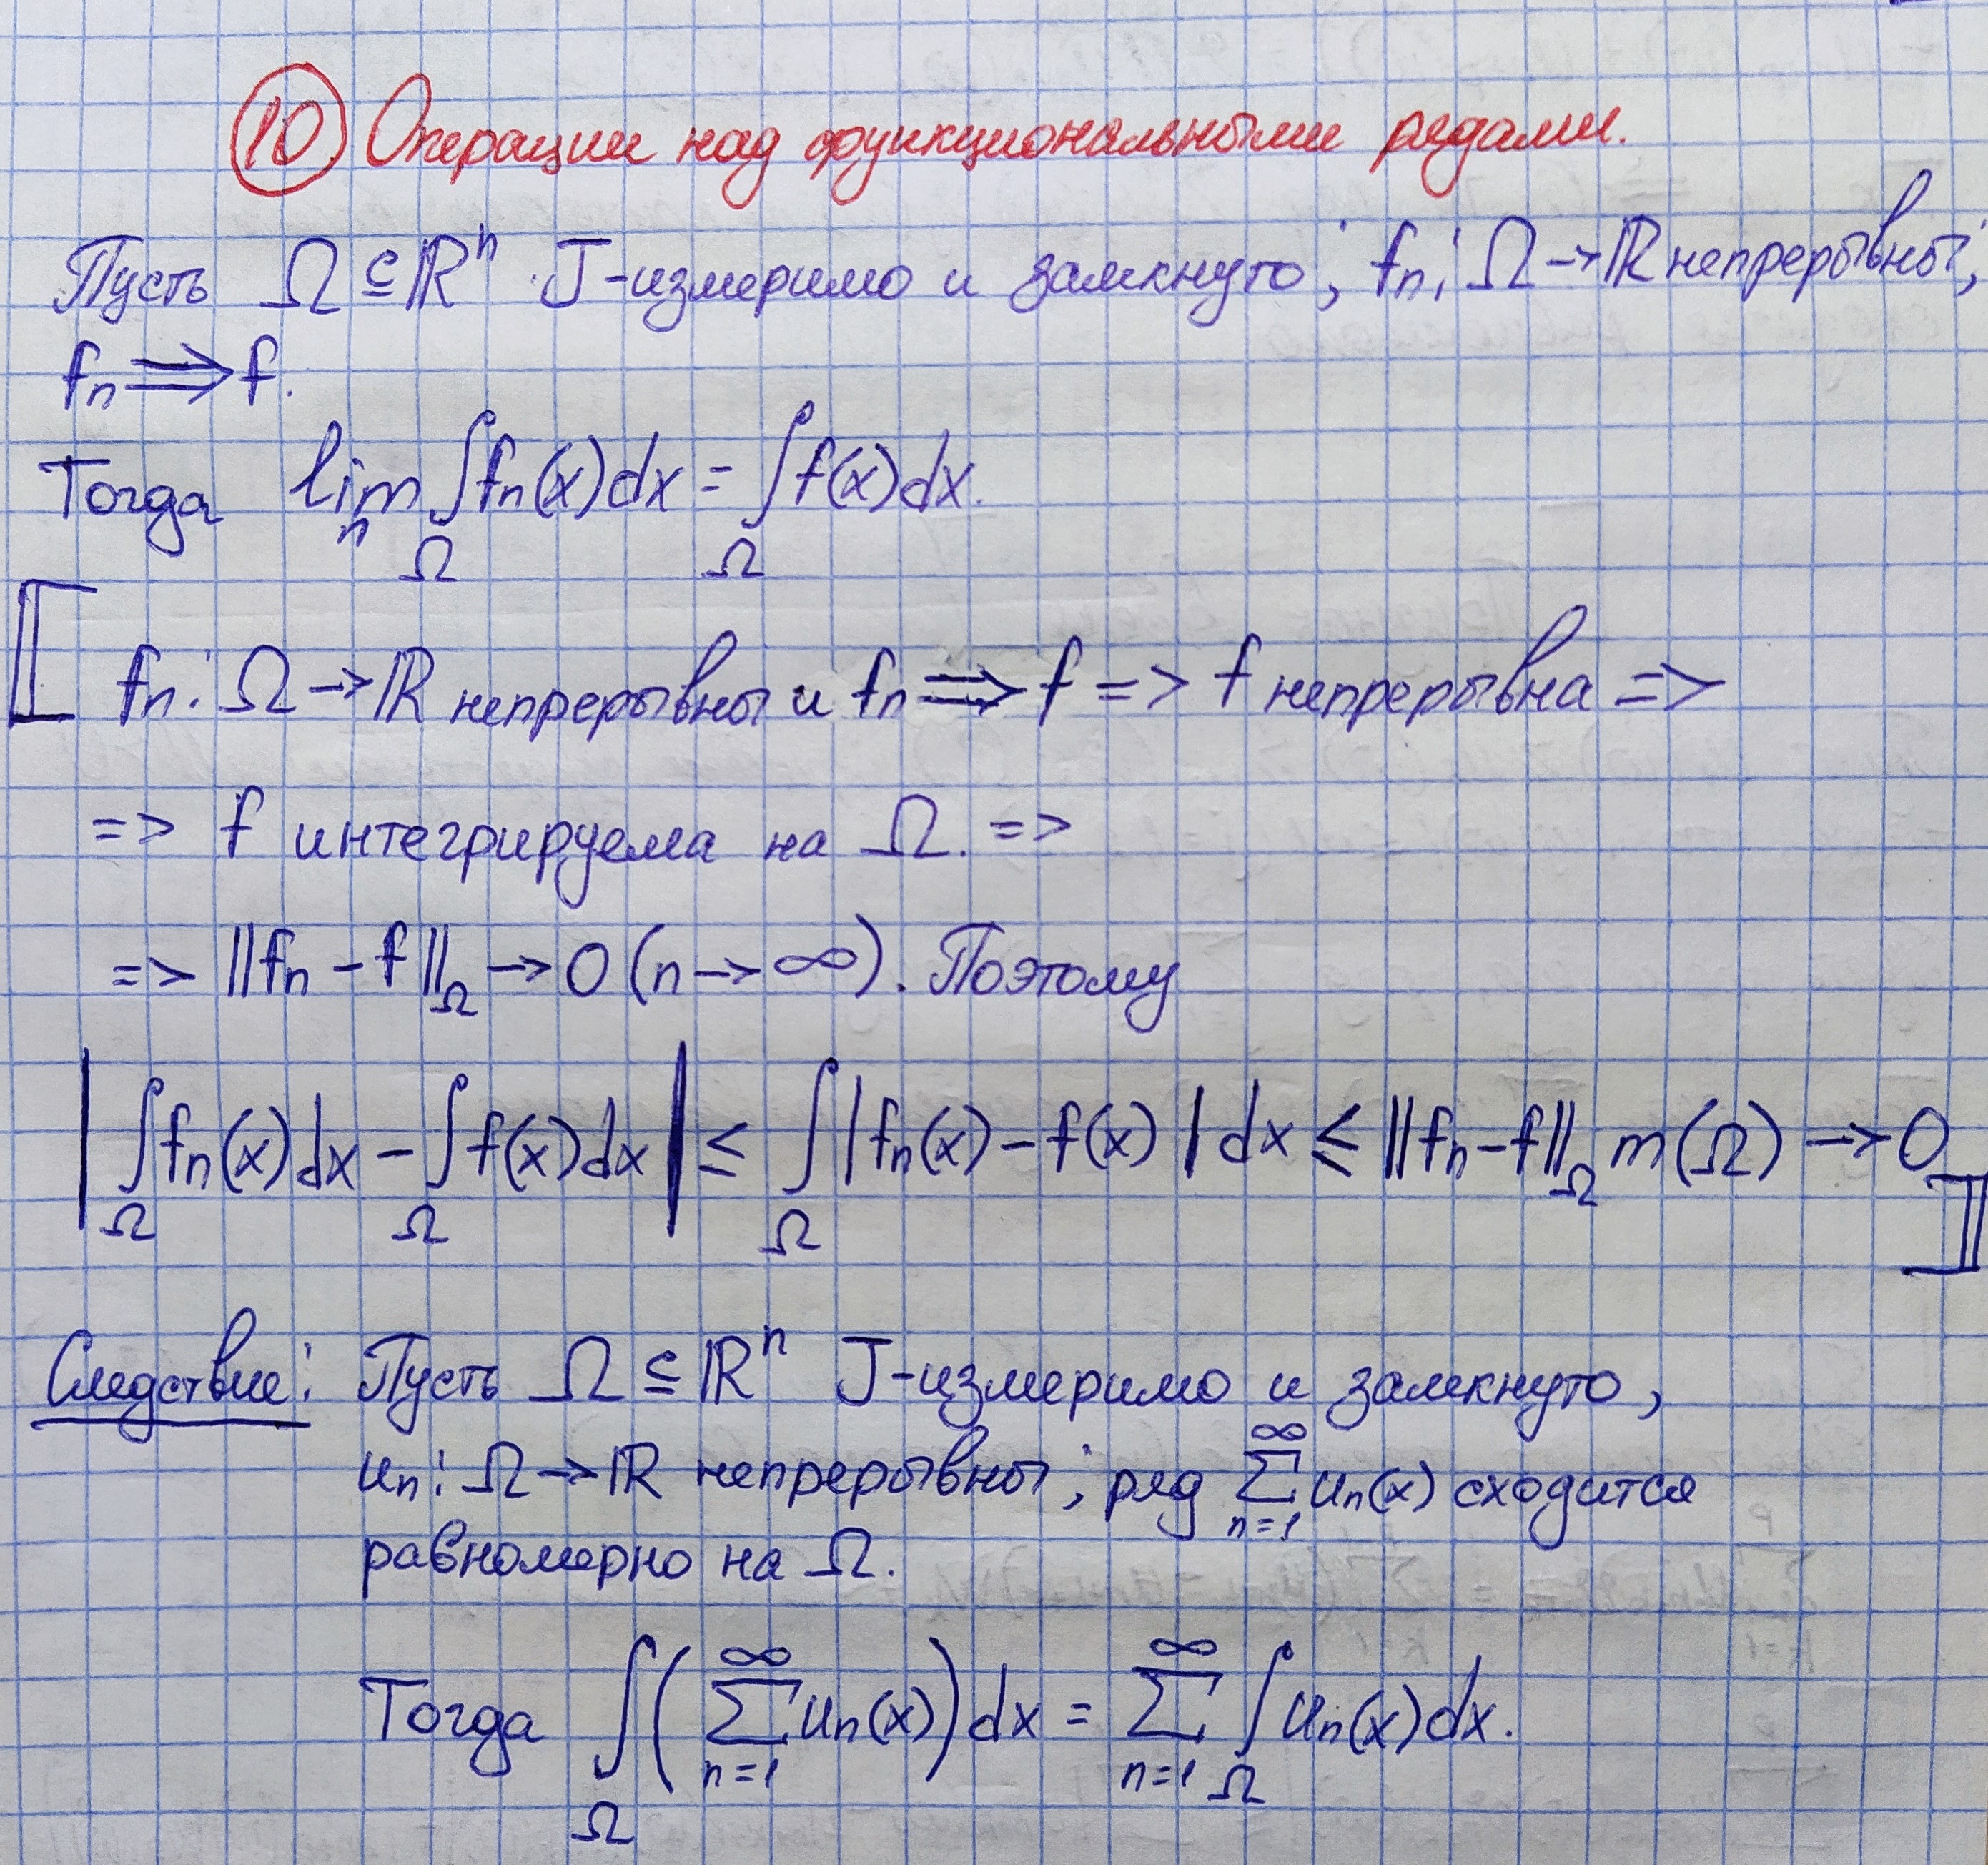 ⑩ Операции над функциональными рядами.
Пусть Ω ⊆ ℝⁿ J-измеримо и замкнуто; fₙ: Ω → ℝ непрерывны;
fₙ ⇉ f.
Тогда lim_n ∫_Ω fₙ(x)dx = ∫_Ω f(x)dx.
⟦ fₙ: Ω → ℝ непрерывны и fₙ ⇉ f => f непрерывна =>
=> f интегрируема на Ω. =>
=> ‖fₙ - f‖_Ω → 0 (n → ∞). Поэтому
|∫_Ω fₙ(x)dx - ∫_Ω f(x)dx| ≤ ∫_Ω |fₙ(x) - f(x)| dx ≤ ‖fₙ - f‖_Ω m(Ω) → 0 ⟧
Следствие: Пусть Ω ⊆ ℝⁿ J-измеримо и замкнуто,
uₙ: Ω → ℝ непрерывны; ряд ∑_{n=1}^∞ uₙ(x) сходится
равномерно на Ω.
Тогда ∫_Ω (∑_{n=1}^∞ uₙ(x)) dx = ∑_{n=1}^∞ ∫_Ω uₙ(x)dx.